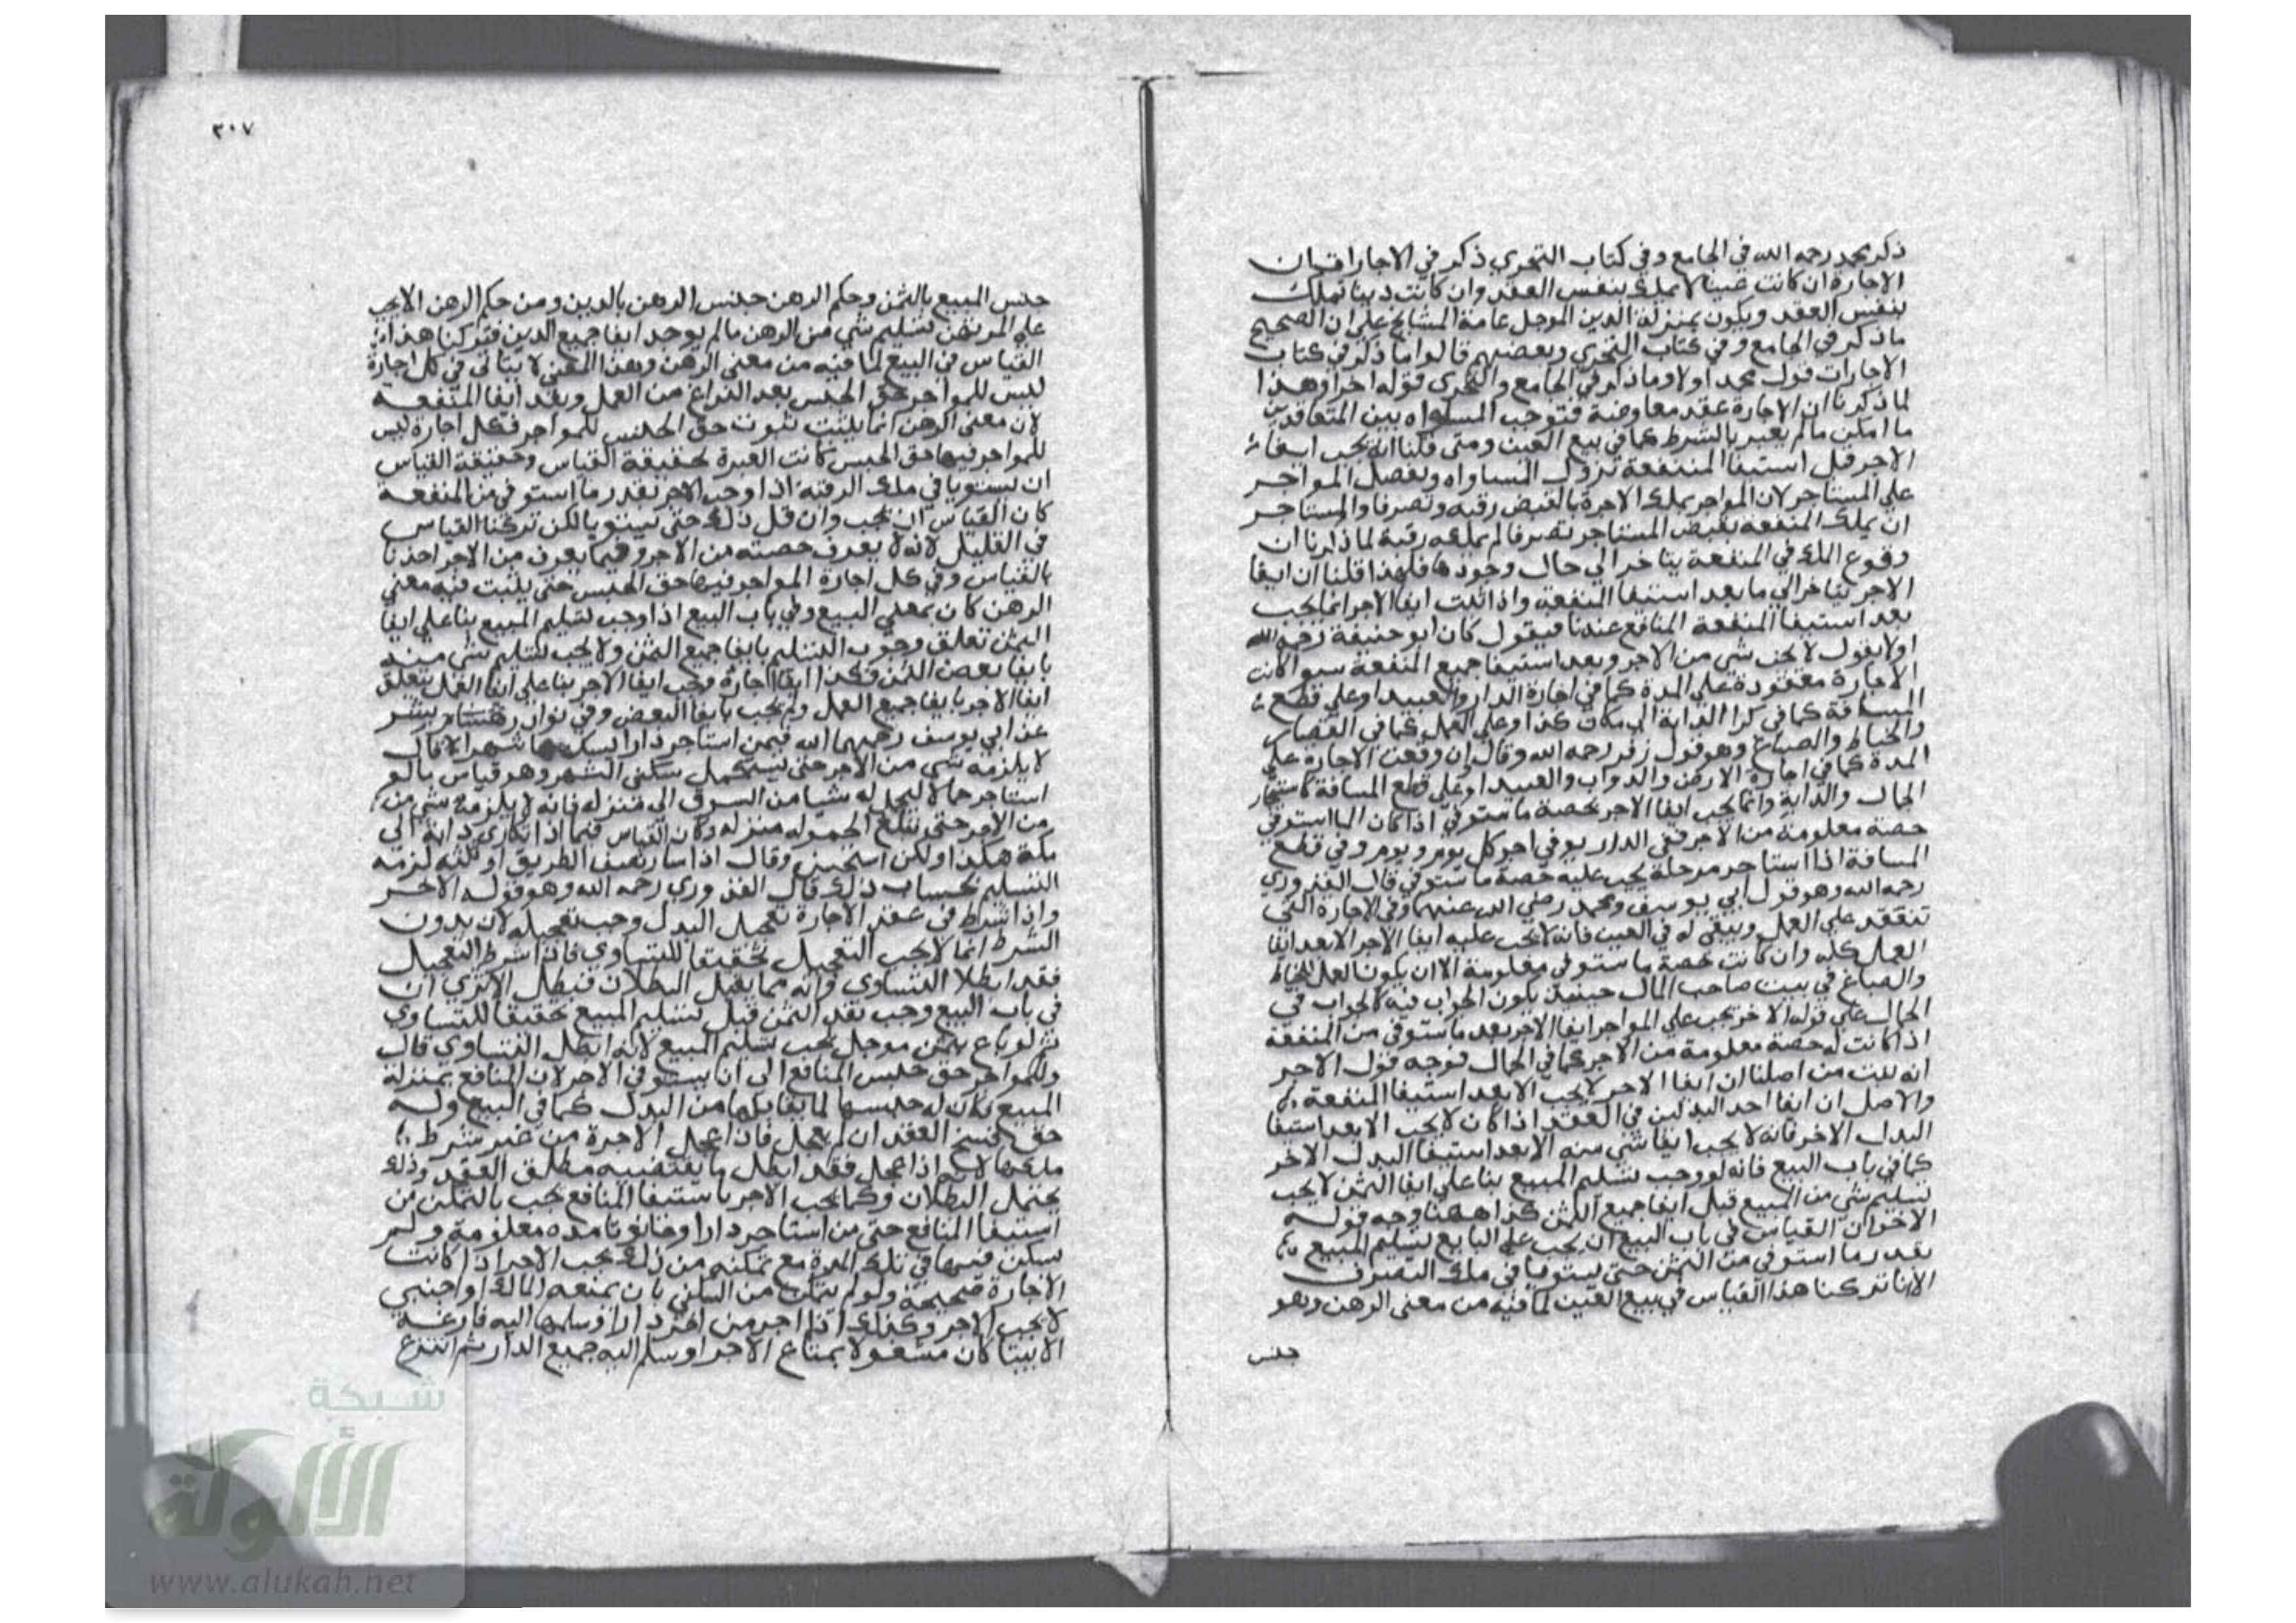 ذكر محمد رحمه الله في الجامع وفي كتاب التحري ذكر في الاجارات ان
الاجارة ان كانت عينا لا يملك بنفس العقد وان كانت دينا تملك
بنفس العقد ويكون بمنزلة الدين الموجل عامة المشايخ على ان الصحيح
ما ذكر في الجامع وفي كتاب التحري وبعضهم قالوا ما ذكر في كتاب
الاجارات قول محمد اولا وما ذكر في الجامع والتحري قوله اخرا وهذا
لما ذكرنا ان الاجارة عقد معاوضة فتوجب المساواه بين المتعاقدين
ما امكن ما لم يعير بالشرط كما في بيع العين ومتى قلنا انه يجب ايفاء
الاجر قبل استيفا المنفعة تزول المساواه ويفضل المواجر
على المستاجر لان المواجر يملك الاجرة بالقبض رقبه وتصرفا والمستاجر
ان يملك المنفعه بقبض المستاجر تصرفا لم يملكه رقبة لما ذكرنا ان
وقوع الملك في المنفعة يتاخر الى حال وجودها فلهذا قلنا ان ايفا
الاجر يتاخر الى ما بعد استيفا المنفعة واذا ثبت ايفا الاجر انما يجب
بعد استيفا المنفعة المنافع عندنا فيقول كان ابو حنيفة رحمه الله
اولا يقول لا يجب شي من الاجر وبعد استيفا جميع المنفعة سوا كانت
الاجارة معقودة على المدة كما في اجارة الدار والعبيد او على قطع
المسافة كما في كرا الدابة الى مكان كذا او على العمل كما في القصار
والخياط والصباغ وهو قول زفر رحمه الله وقال ان وقعت الاجاره على
المدة كما في اجارة الارض والدواب والعبيد او على قطع المسافة كاستيجار
الجمال والدابة وانما يجب ايفا الاجر بحصة ما ستوفي اذا كان استوفي
حصة معلومة من الاجر ففي الدار يوفي اجر كل يوم ويوم وفي قطع
المسافة اذا استاجر مرحلة يجب عليه حصة ما ستوفي قال القدوري
رحمه الله وهو قول ابي يوسف ومحمد رضي الله عنهما وفي الاجارة التي
تنعقد على العمل ويبقى له في العين فانه لا يجب عليه ايفا الاجر الا بعد ايفا
العمل كله وان كانت حصة ما ستوفي معلومة الا ان يكون العمل الخياط
والصباغ في بيت صاحب المال حينيذ يكون الجواب فيه كالجواب في
الجمال على قوله الاخر يجب على المواجر ايفا الاجر بعد ما ستوفي من المنفعة
اذا كانت له حصة معلومة من الاجر كما في الجمال فوجه قول الاخر
انه ثبت من اصلنا ان ايفا الاجر لا يجب الا بعد استيفا المنفعة
والاصل ان ايفا احد البدلين في العقد اذا كان لا يجب الا بعد استيفا
البدل الاخر فانه لا يجب ايفا شي منه الا بعد استيفا البدل الاخر
كما في باب البيع فانه لو وجب تسليم المبيع بنا على ايفا الثمن لا يجب
تسليم شي من المبيع قبل ايفا جميع الثمن كذا ههنا وجه قوله
الاخر ان القياس في باب البيع ان يجب على البايع تسليم المبيع
بقدر ما استوفي من الثمن حتى يستويا في ملك التصرف
الا انا تركنا هذا القياس في بيع العين لما فيه من معنى الرهن وهو
حبس
٣٠٧
حبس المبيع بالثمن وحكم الرهن حبس الرهن بالدين ومن حكم الرهن الا يجب
على المرتهن تسليم شي من الرهن ما لم يوجد ايفا جميع الدين فتركنا هذا
القياس في البيع لما فيه من معنى الرهن وهذا المعنى لا يتاتى في كل اجارة
ليس للمواجر حق الحبس بعد الفراغ من العمل وبعد ايفا المنفعة
لان معنى الرهن انما يثبت ثبوت حق الحبس للمواجر فكل اجارة ليس
للمواجر فيها حق الحبس كانت العبرة لحقيقة القياس وحقيقة القياس
ان يستويا في ملك الرقبة اذا وجب الاجر بقدر ما استوفى من المنفعة
كان القياس ان يجب وان قل ذلك حتى يستويا لكن تركنا القياس
في القليل لانه لا يعرف حصته من الاجر وفيما يعرف من الاجر اخذنا
بالقياس وفي كل اجارة المواجر فيها حق الحبس حتى يثبت فيه معنى
الرهن كان بمعنى البيع وفي باب البيع اذا وجب تسليم المبيع بنا على ايفا
الثمن تعلق وجوب التسليم بايفا جميع الثمن ولا يجب تسليم شي منه
بايفا بعض الثمن فكذا ايفا اجارة وجب ايفا الاجر بنا على ايفا العمل يتعلق
ايفا الاجر بايفا جميع العمل ولم يجب بايفا البعض وفي نوادر هشام بشر
عن ابي يوسف رحمهما الله فيمن استاجر دارا ليسكنها شهرا الا قال
لا يلزمه شي من الاجر حتى يستكمل سكنى الشهر وهو قياس ما لو
استاجر حمالا ليحمل له شيا من السوق الى منزله فانه لا يلزمه شي من
من الاجر حتى يبلغ الحموله منزله وكان القياس فيما اذا تكارى دابة الى
مكة هكذا ولكن استحسن وقال اذا سار نصف الطريق او ثلثه لزمه
التسليم بحساب ذلك قال القدوري رحمه الله وهو قوله الاخر
واذا شرط في عقد الاجارة تعجيل البدل وجب تعجيله لان بدون
الشرط انما لا يجب التعجيل تحقيقا للتساوي فاذا شرط التعجيل
فقد ابطلا التساوي وانه مما يقبل البطلان فيبطل الا ترى ان
في باب البيع وجب نقد الثمن قبل تسليم المبيع تحقيقا للتساوي
ثم لو باع بثمن موجل يجب تسليم المبيع لانه ابطل التساوي قال
وللمواجر حق حبس المنافع الى ان يستوفي الاجر لان المنافع بمنزلة
المبيع فكان له حبسها لما يقابلها من البدل كما في البيع وله
حق فسخ العقد ان لم يعجل فاذا عجل الاجرة من غير شرط
ملكها لانه اذا عجل فقد ابطل ما يقتضيه مطلق العقد وذلك
يحتمل البطلان وكما يجب الاجر باستيفا المنافع يجب بالتمكن من
استيفا المنافع حتى من استاجر دارا او حانوتا مده معلومة ولم
يسكن فيها في تلك المدة مع تمكنه من ذلك يجب الاجر اذا كانت
الاجارة صحيحة ولو لم يتمكن من السكنى بان يمنعه المالك او اجنبي
لا يجب الاجر وكذلك اذا اجر من اخر دارا وسلمها اليه فارغة
الا بيتا كان مشغولا بمتاع الاجر او سلم اليه جميع الدار ثم انتزع
شبكة
الألوكة
www.alukah.net